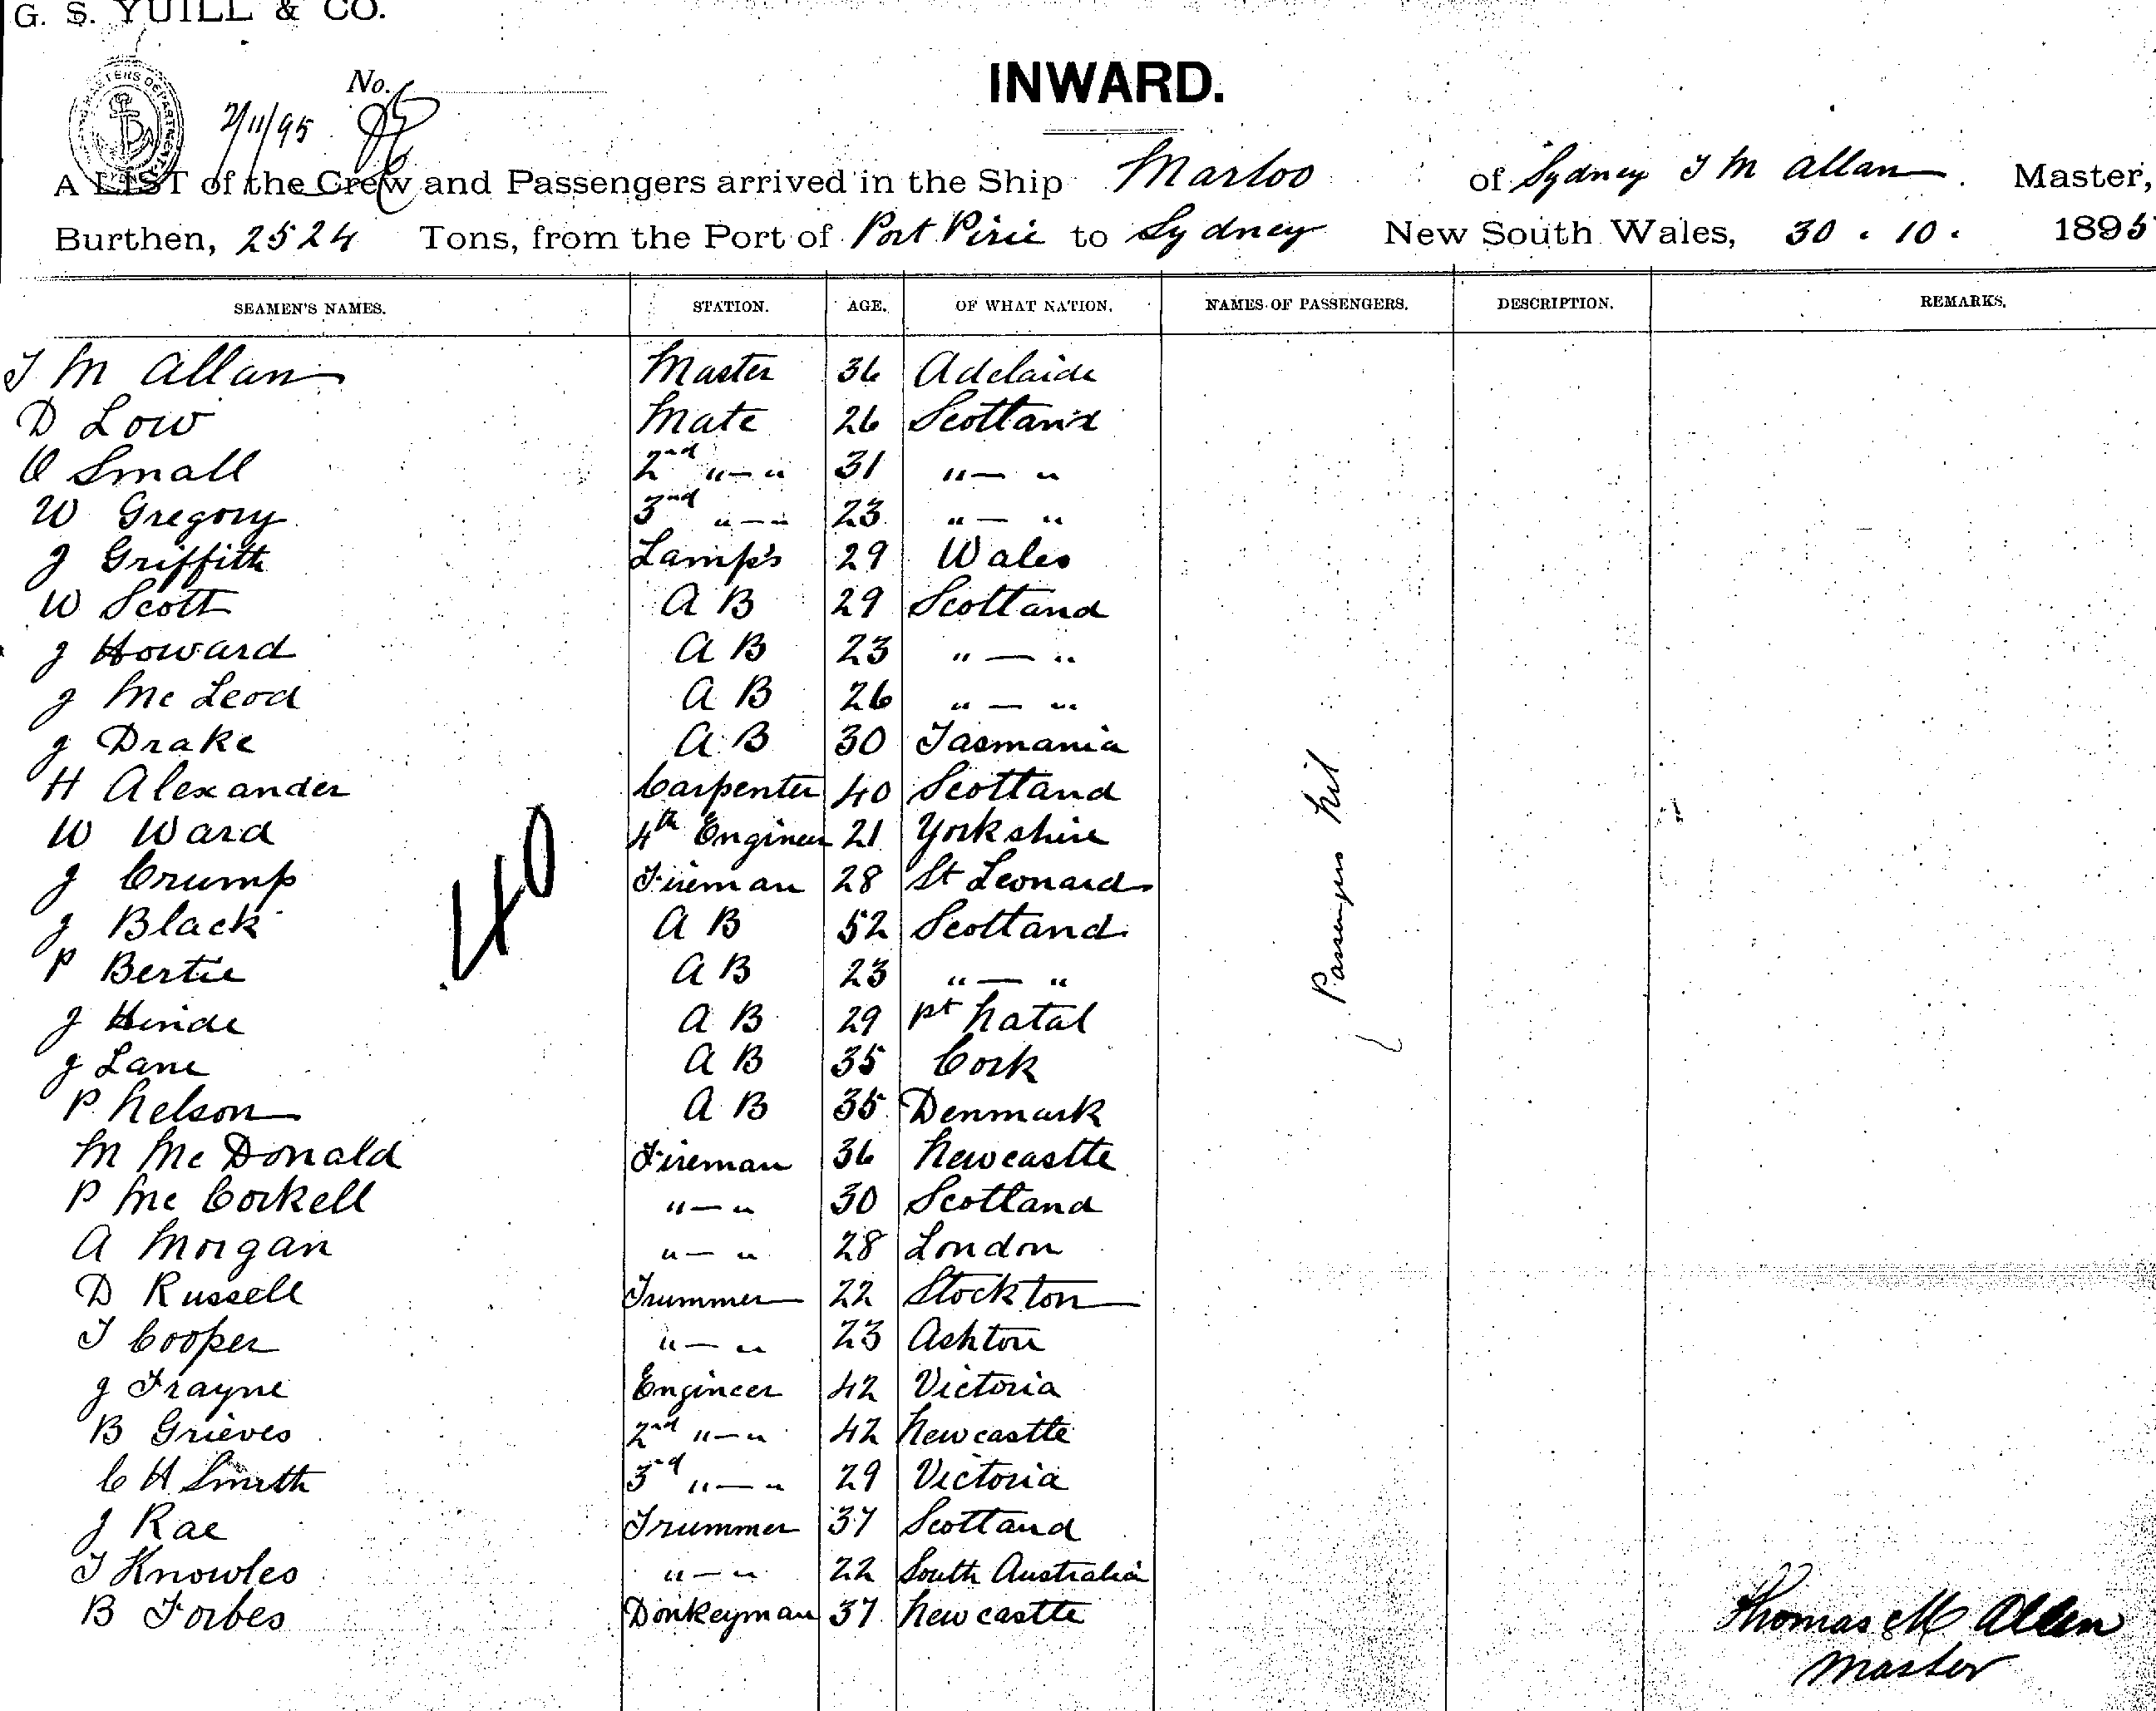 G. S. YUILL & CO.
INWARD.
No.
2/11/95
A LIST of the Crew and Passengers arrived in the Ship Marloo of Sydney T M Allan Master,
Burthen, 2524 Tons, from the Port of Port Pirie to Sydney New South Wales, 30 . 10 . 1895
SEAMEN'S NAMES. STATION. AGE. OF WHAT NATION. NAMES OF PASSENGERS. DESCRIPTION. REMARKS.
T M Allan Master 36 Adelaide
D Low Mate 26 Scotland
O Small 2nd "—" 31 "—"
W Gregory 3nd "—" 23 "—"
J Griffith Lamps 29 Wales
W Scott A B 29 Scotland
J Howard A B 23 "—"
J McLeod A B 26 "—"
J Drake A B 30 Tasmania
H Alexander Carpenter 40 Scotland
W Ward 4th Engineer 21 Yorkshire
J Crump Fireman 28 St Leonards
J Black A B 52 Scotland
P Bertie A B 23 "—"
J Hinde A B 29 Pt Natal
J Lane A B 35 Cork
P. Nelson A B 35 Denmark
M McDonald Fireman 36 Newcastle
P McCorkell "—" 30 Scotland
A Morgan "—" 28 London
D Russell Trummer 22 Stockton
T Cooper "—" 23 Ashton
J Frayne Engineer 42 Victoria
B Grieves 2nd "—" 42 Newcastle
C H Smith 3rd "—" 29 Victoria
J Rae Trummer 37 Scotland
T Knowles "—" 22 South Australia
B Forbes Donkeyman 37 Newcastle
40
Passengers Nil
Thomas M Allan
Master